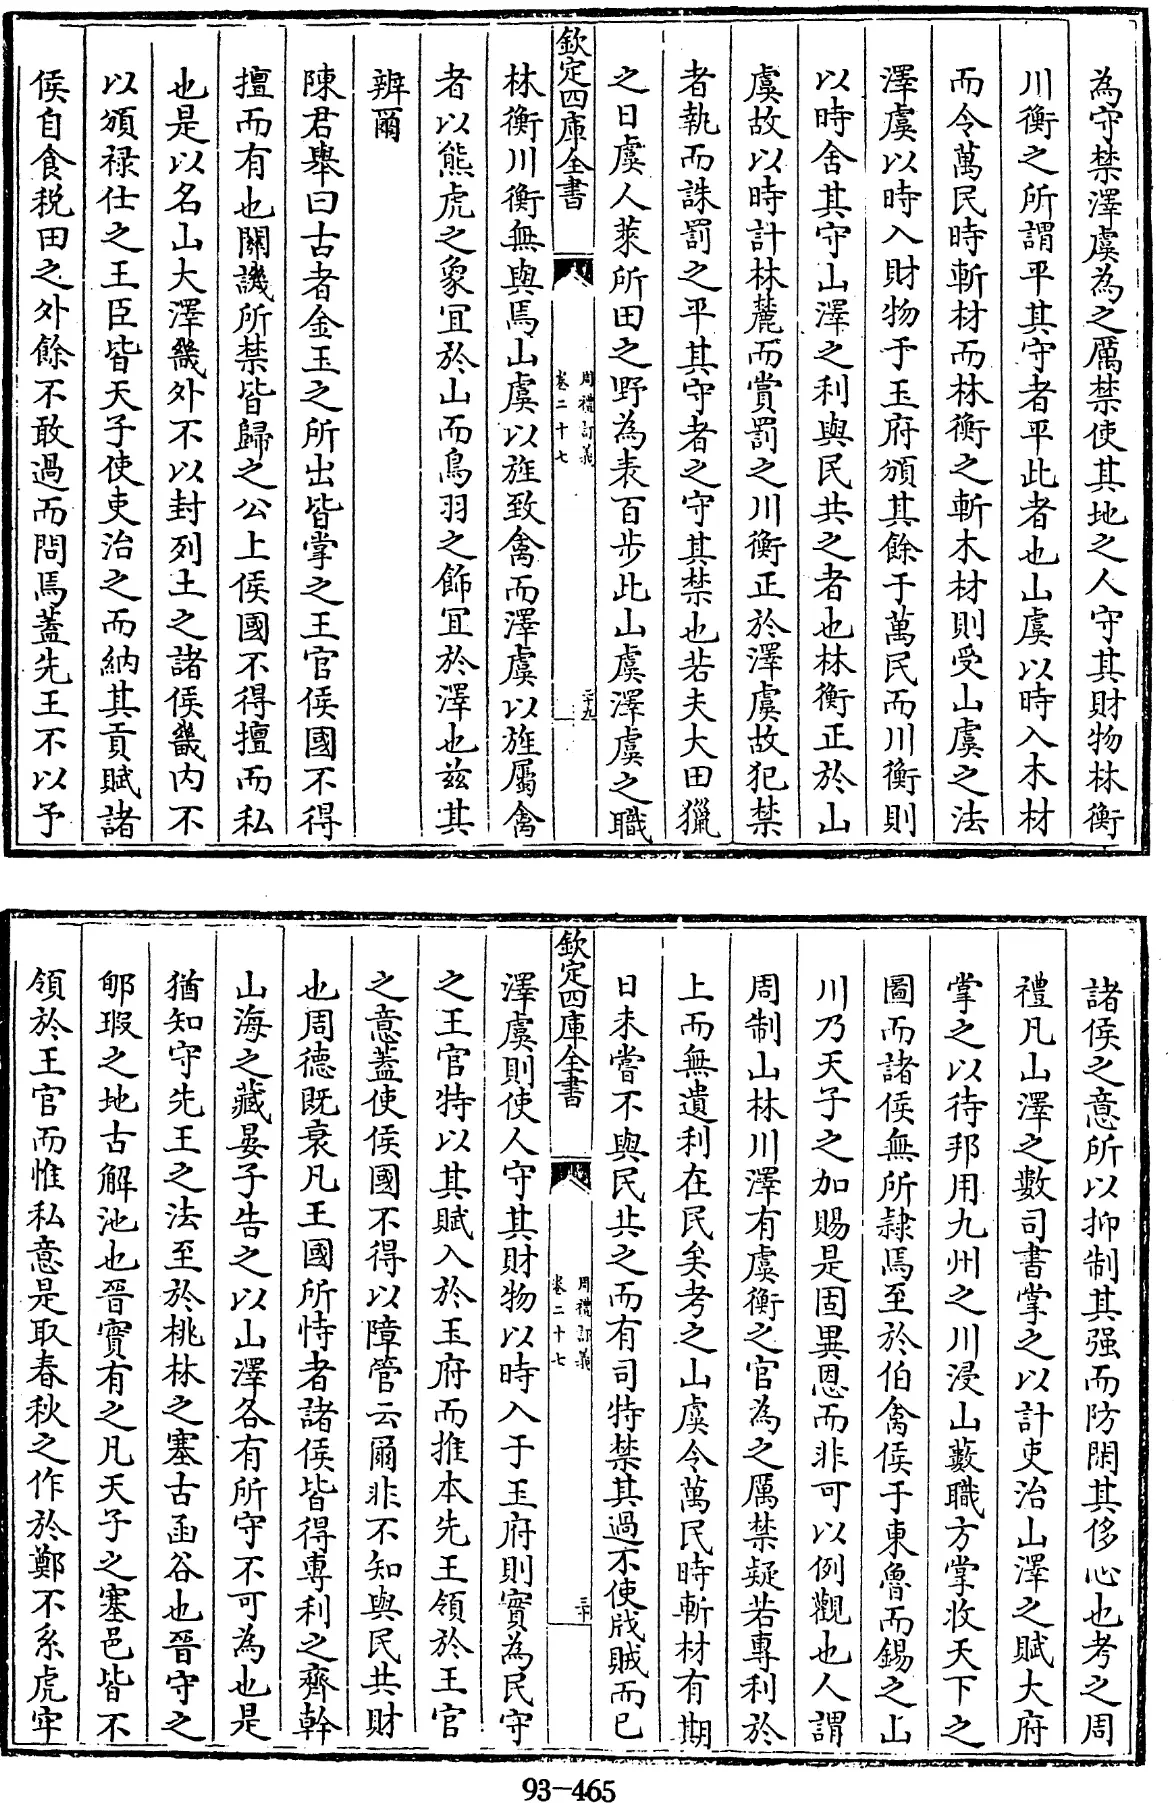 為守禁澤虞為之厲禁使其地之人守其財物林衡
川衡之所謂平其守者平此者也山虞以時入木材
而令萬民時斬材而林衡之斬木材則受山虞之法
澤虞以時入財物于玉府頒其餘于萬民而川衡則
以時舍其守山澤之利與民共之者也林衡正於山
虞故以時計林麓而賞罰之川衡正於澤虞故犯禁
者執而誅罰之平其守者之守其禁也若夫大田獵
之日虞人萊所田之野為表百步此山虞澤虞之職
欽定四庫全書
周禮訂義
卷二十七
二十九
林衡川衡無與焉山虞以旌致禽而澤虞以旌屬禽
者以熊虎之象宜於山而鳥羽之飾宜於澤也兹其
辨爾
陳君舉曰古者金玉之所出皆掌之王官侯國不得
擅而有也關譏所禁皆歸之公上侯國不得擅而私
也是以名山大澤畿外不以封列土之諸侯畿内不
以頒禄仕之王臣皆天子使吏治之而納其貢賦諸
侯自食税田之外餘不敢過而問焉蓋先王不以予
諸侯之意所以抑制其强而防閑其侈心也考之周
禮凡山澤之數司書掌之以計吏治山澤之賦大府
掌之以待邦用九州之川浸山藪職方掌收天下之
圖而諸侯無所隸焉至於伯禽侯于東魯而錫之山
川乃天子之加賜是固異恩而非可以例觀也人謂
周制山林川澤有虞衡之官為之厲禁疑若專利於
上而無遺利在民矣考之山虞令萬民時斬材有期
日未嘗不與民共之而有司特禁其過不使戕賊而已
欽定四庫全書
周禮訂義
卷二十七
三十
澤虞則使人守其財物以時入于玉府則實為民守
之王官特以其賦入於玉府而推本先王領於王官
之意蓋使侯國不得以障管云爾非不知與民共財
也周德既衰凡王國所恃者諸侯皆得專利之齊幹
山海之藏晏子告之以山澤各有所守不可為也是
猶知守先王之法至於桃林之塞古函谷也晉守之
郇瑕之地古解池也晉實有之凡天子之塞邑皆不
領於王官而惟私意是取春秋之作於鄭不系虎牢
93-465